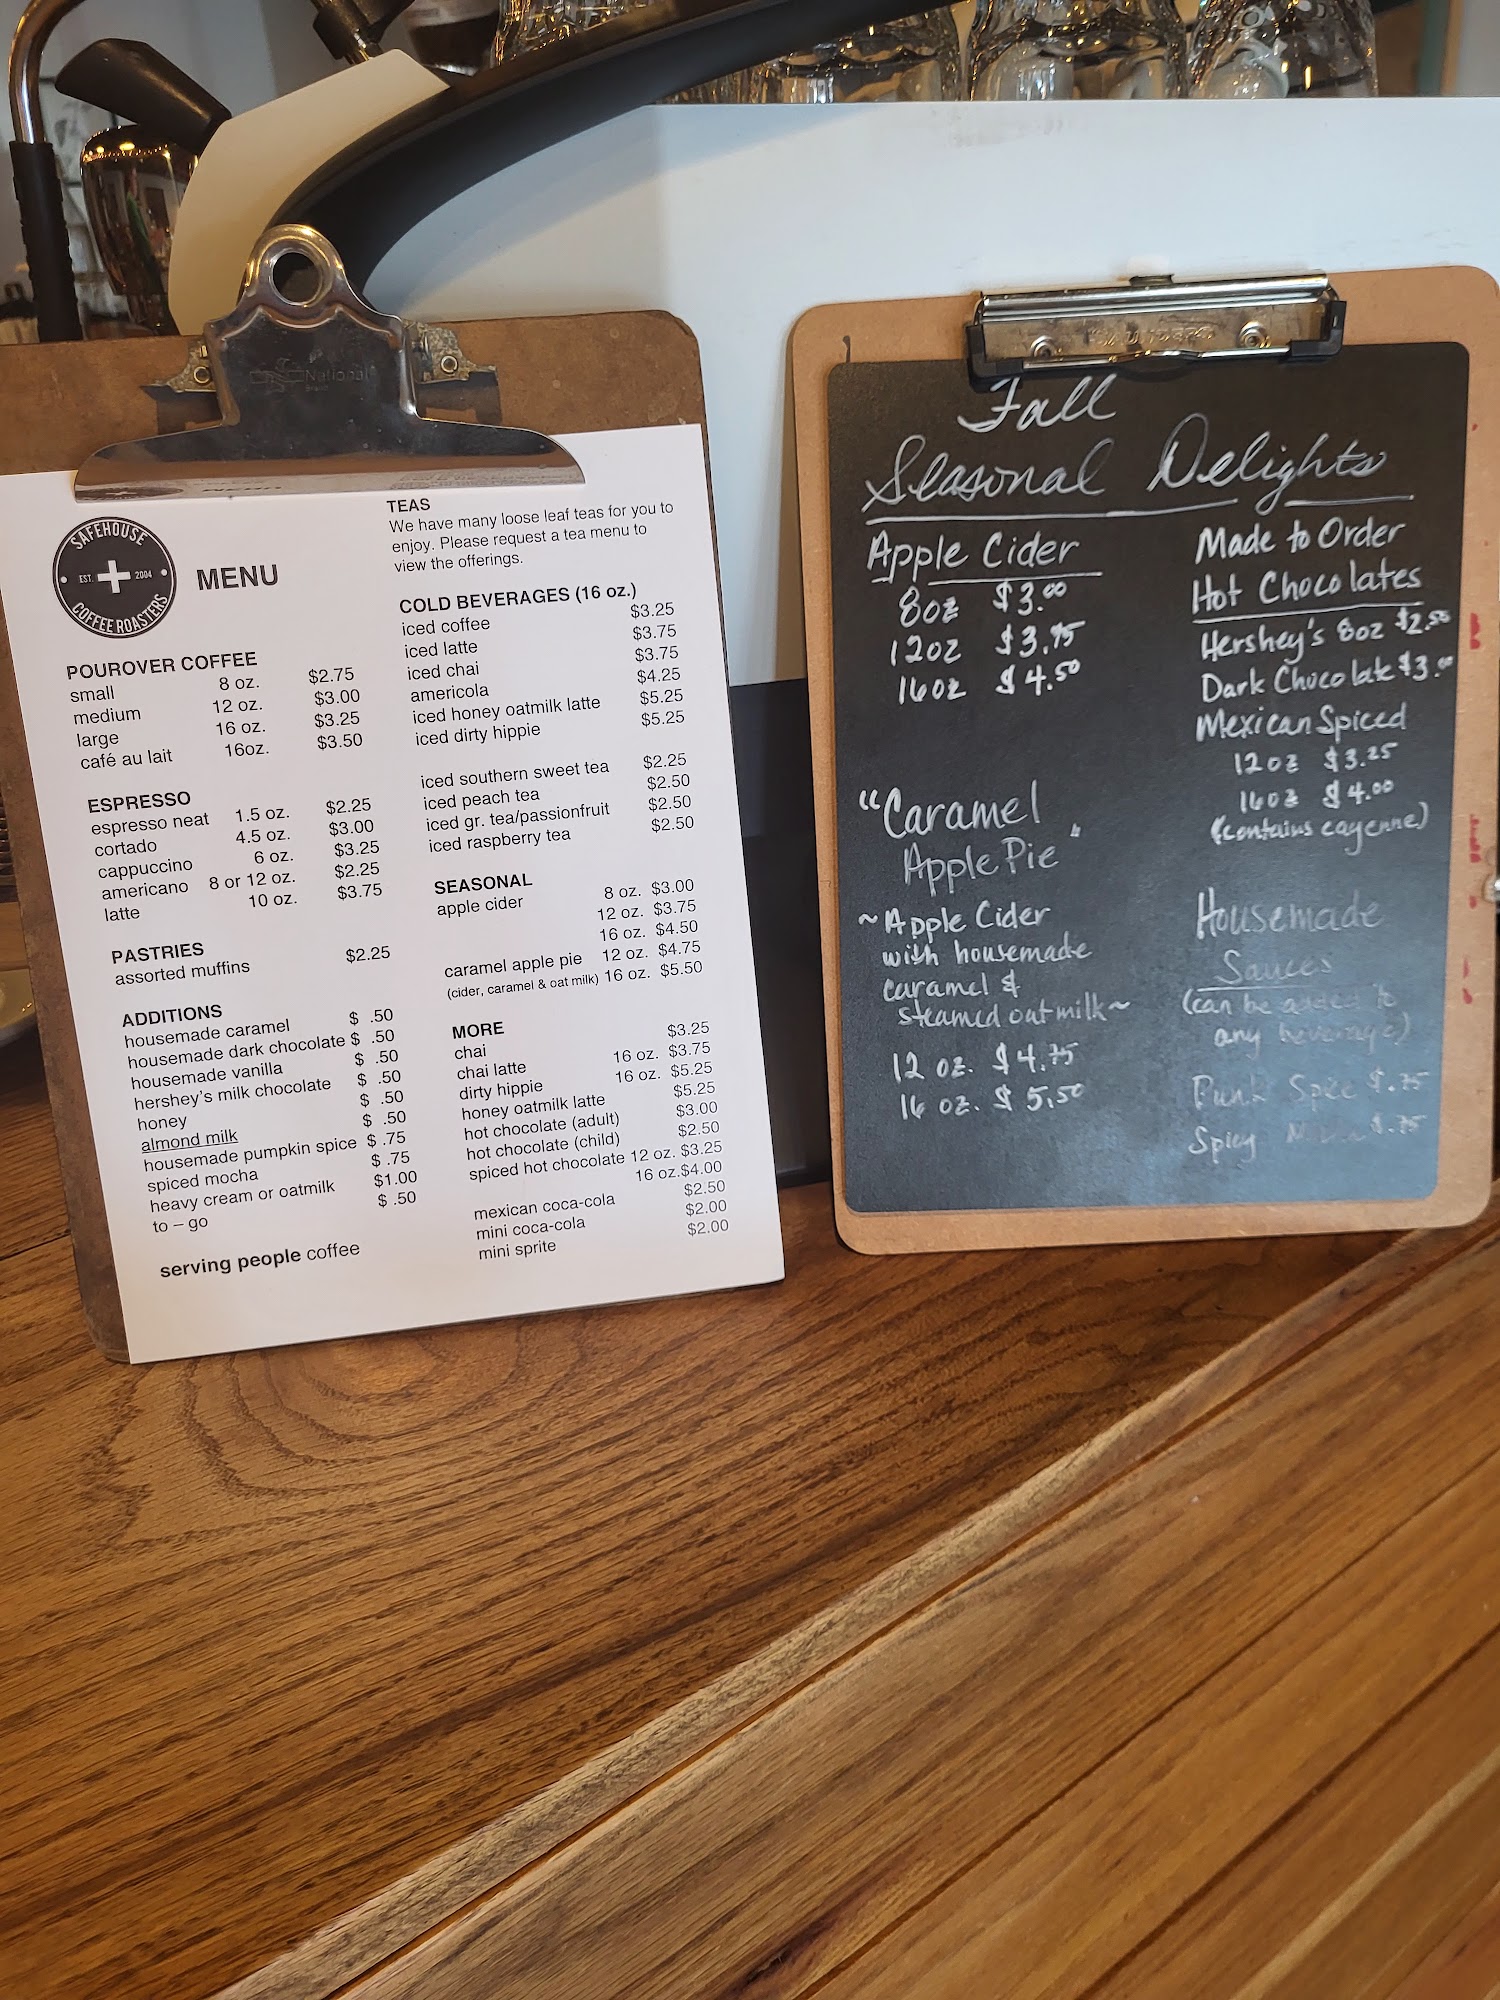 National
SAFEHOUSE
EST. 2004
COFFEE ROASTERS
MENU
POUROVER COFFEE
small 8 oz. $2.75
medium 12 oz. $3.00
large 16 oz. $3.25
café au lait 16oz. $3.50
ESPRESSO
espresso neat 1.5 oz. $2.25
cortado 4.5 oz. $3.00
cappuccino 6 oz. $3.25
americano 8 or 12 oz. $2.25
latte 10 oz. $3.75
PASTRIES
assorted muffins $2.25
ADDITIONS
housemade caramel $ .50
housemade dark chocolate $ .50
housemade vanilla $ .50
hershey's milk chocolate $ .50
honey $ .50
almond milk $ .50
housemade pumpkin spice $ .75
spiced mocha $ .75
heavy cream or oatmilk $1.00
to – go $ .50
serving people coffee
TEAS
We have many loose leaf teas for you to
enjoy. Please request a tea menu to
view the offerings.
COLD BEVERAGES (16 oz.)
iced coffee $3.25
iced latte $3.75
iced chai $3.75
americola $4.25
iced honey oatmilk latte $5.25
iced dirty hippie $5.25
iced southern sweet tea $2.25
iced peach tea $2.50
iced gr. tea/passionfruit $2.50
iced raspberry tea $2.50
SEASONAL
apple cider 8 oz. $3.00
12 oz. $3.75
16 oz. $4.50
caramel apple pie 12 oz. $4.75
(cider, caramel & oat milk) 16 oz. $5.50
MORE
chai $3.25
chai latte 16 oz. $3.75
dirty hippie 16 oz. $5.25
honey oatmilk latte $5.25
hot chocolate (adult) $3.00
hot chocolate (child) $2.50
spiced hot chocolate 12 oz. $3.25
16 oz.$4.00
mexican coca-cola $2.50
mini coca-cola $2.00
mini sprite $2.00
Fall
Seasonal Delights
Apple Cider
8oz $3.00
12oz $3.75
16oz $4.50
"Caramel
Apple Pie"
~Apple Cider
with housemade
caramel &
steamed oatmilk~
12 oz. $4.75
16 oz. $5.50
Made to Order
Hot Chocolates
Hershey's 8oz $2.50
Dark Chocolate $3.00
Mexican Spiced
12oz $3.25
16oz $4.00
(contains cayenne)
Housemade
Sauces
(can be added to
any beverage)
Punk Spice $.75
Spicy $.75